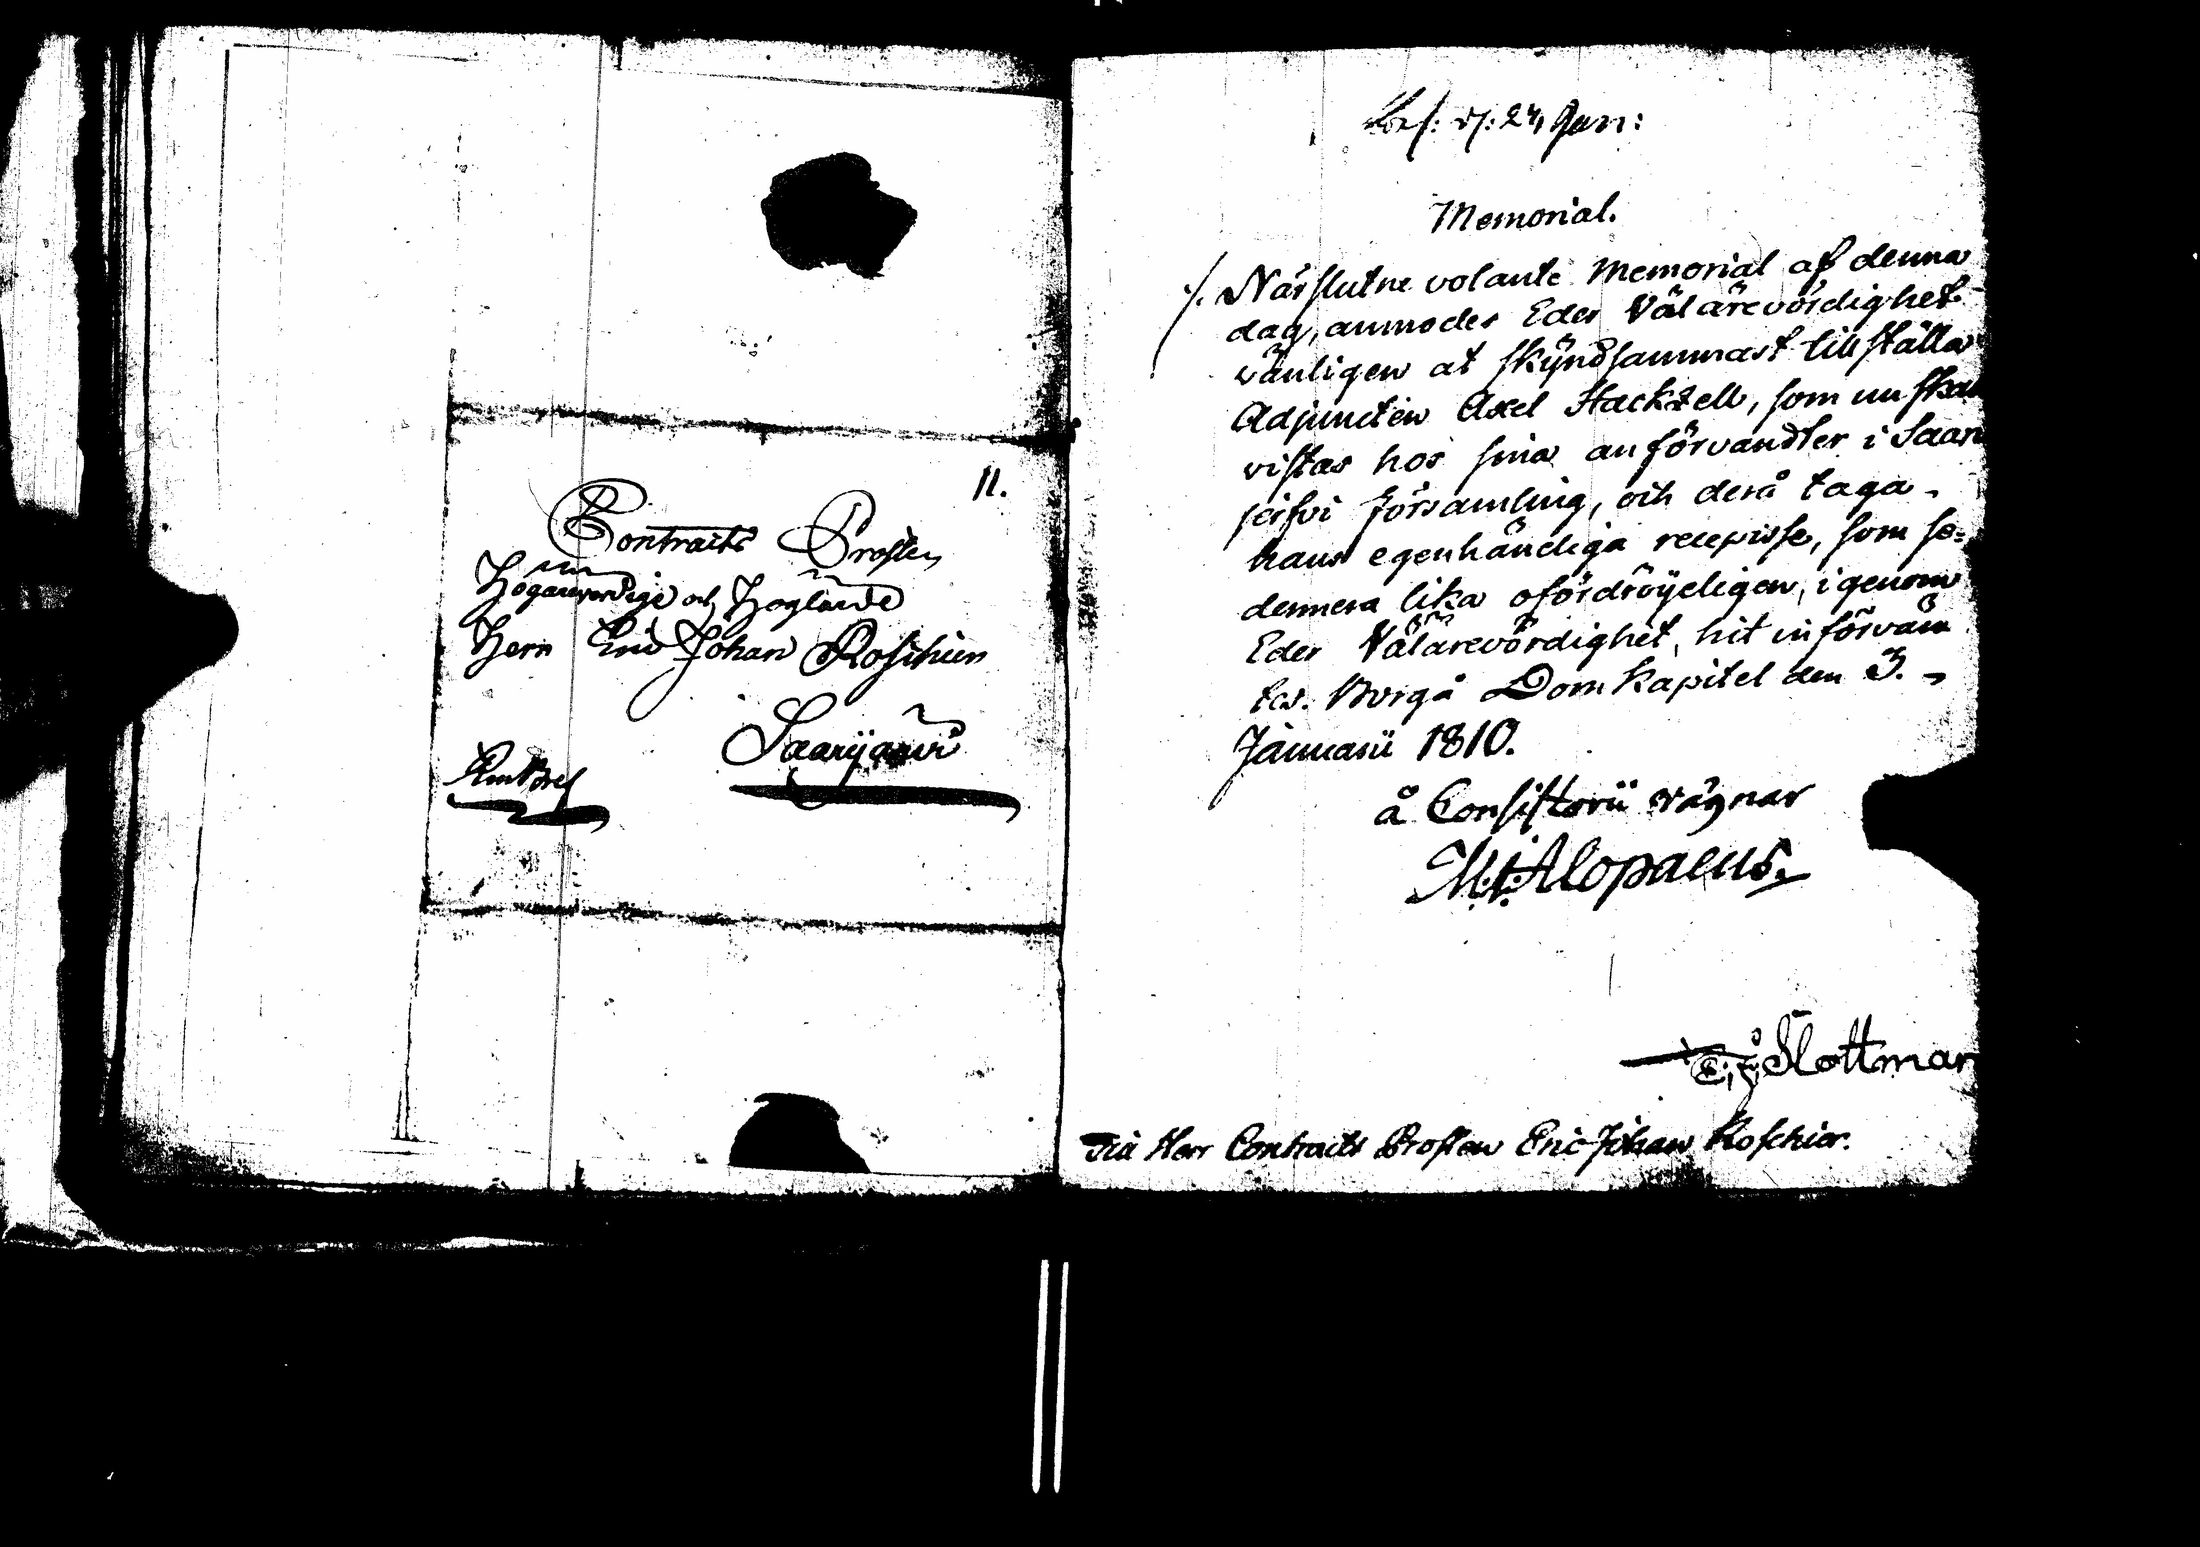 11.
Contracts Prosten
Högärevördige och Höglärde
Herr Eric Johan Roschier
Saarijärvi
Embtsbref
d: 24 Jan:
Memorial.
./. Närslutne volante Memorial af denna
dag, anmodes Eder Välärevördighet
vänligen at skyndsammast tillställa
Adjuncten Axel Hackzell, som nu skall
vistas hos sina anförvandter i Saari
jerfvi församling, och derå taga
hans egenhändiga recepisse, som se=
dermera lika ofördröyeligen, igenom
Eder Välärevördighet, hit införvän
tes. Borgå Domkapitel den 3.
Januarii 1810.
å Consistorii vägnar
M: J: Alopaeus.
C. J. Slottman
Till Herr Contracts Prosten Eric Johan Roschier.